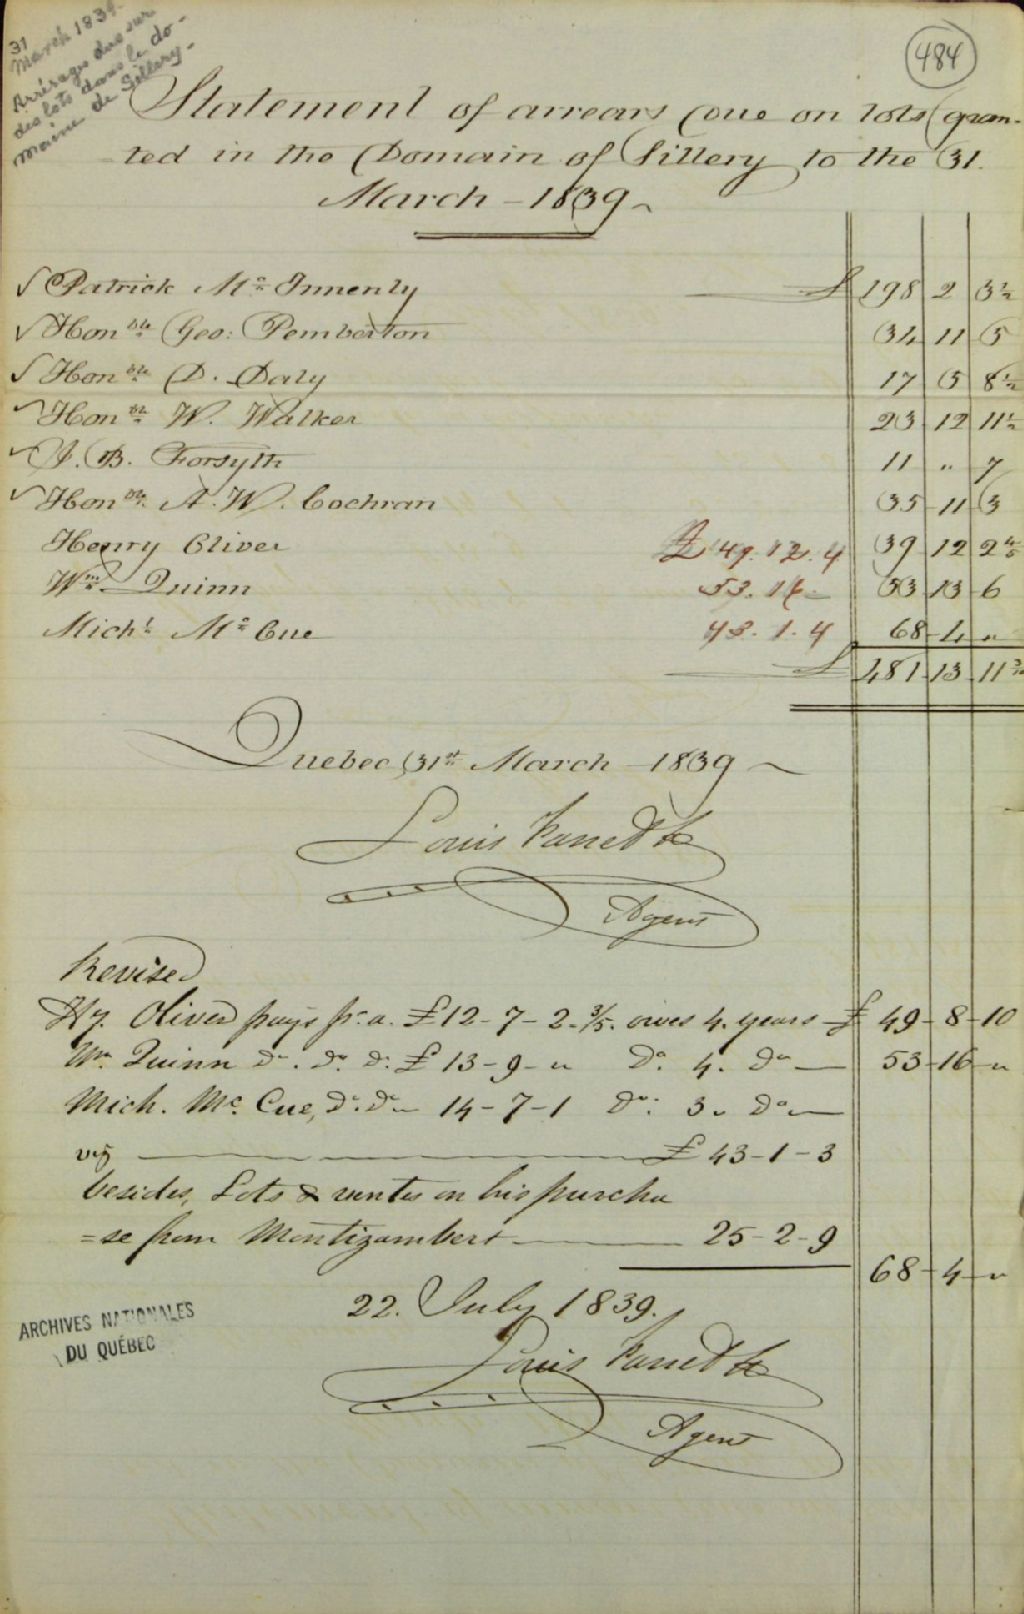 31
March 1839.
Arrérages dus sur
des lots dans le do-
maine de Sillery.
484
Statement of arrears due on lots gran-
ted in the Domain of Sillery to the 31.
March - 1839
√ Patrick Mc Innenly £ 198 2 3½
√ Honble Geo: Pemberton 34 11 5
√ Honble D. Daly 17 5 8½
√ Honble W. Walker 23 12 11½
√ J. B. Forsyth 11 " 7
√ Honble A. W. Cochran 35 11 3
Henry Oliver £ 49. 12. 4 39 12 2⅘
Wm Quinn 53. 16 - 53 13 6
Michl Mc Cue 43. 1. 4 68 4 "
£ 481 13 11
Quebec 31st March 1839
Louis
Agent
Revised
Hy. Oliver pays pr. a. £ 12-7-2.⅗. owes 4. years £ 49-8-10
Wm. Quinn do. do. do. £ 13-9-" Do. 4. Do 53-16-"
Mich. Mc. Cue, Do. Do 14-7-1 Do: 3. Do
viz £ 43-1-3
besides, Lots & ventes on his purcha
=se from Montizambert 25-2-9
68-4-"
22. July 1839.
Louis
Agent
ARCHIVES NATIONALES
DU QUÉBEC